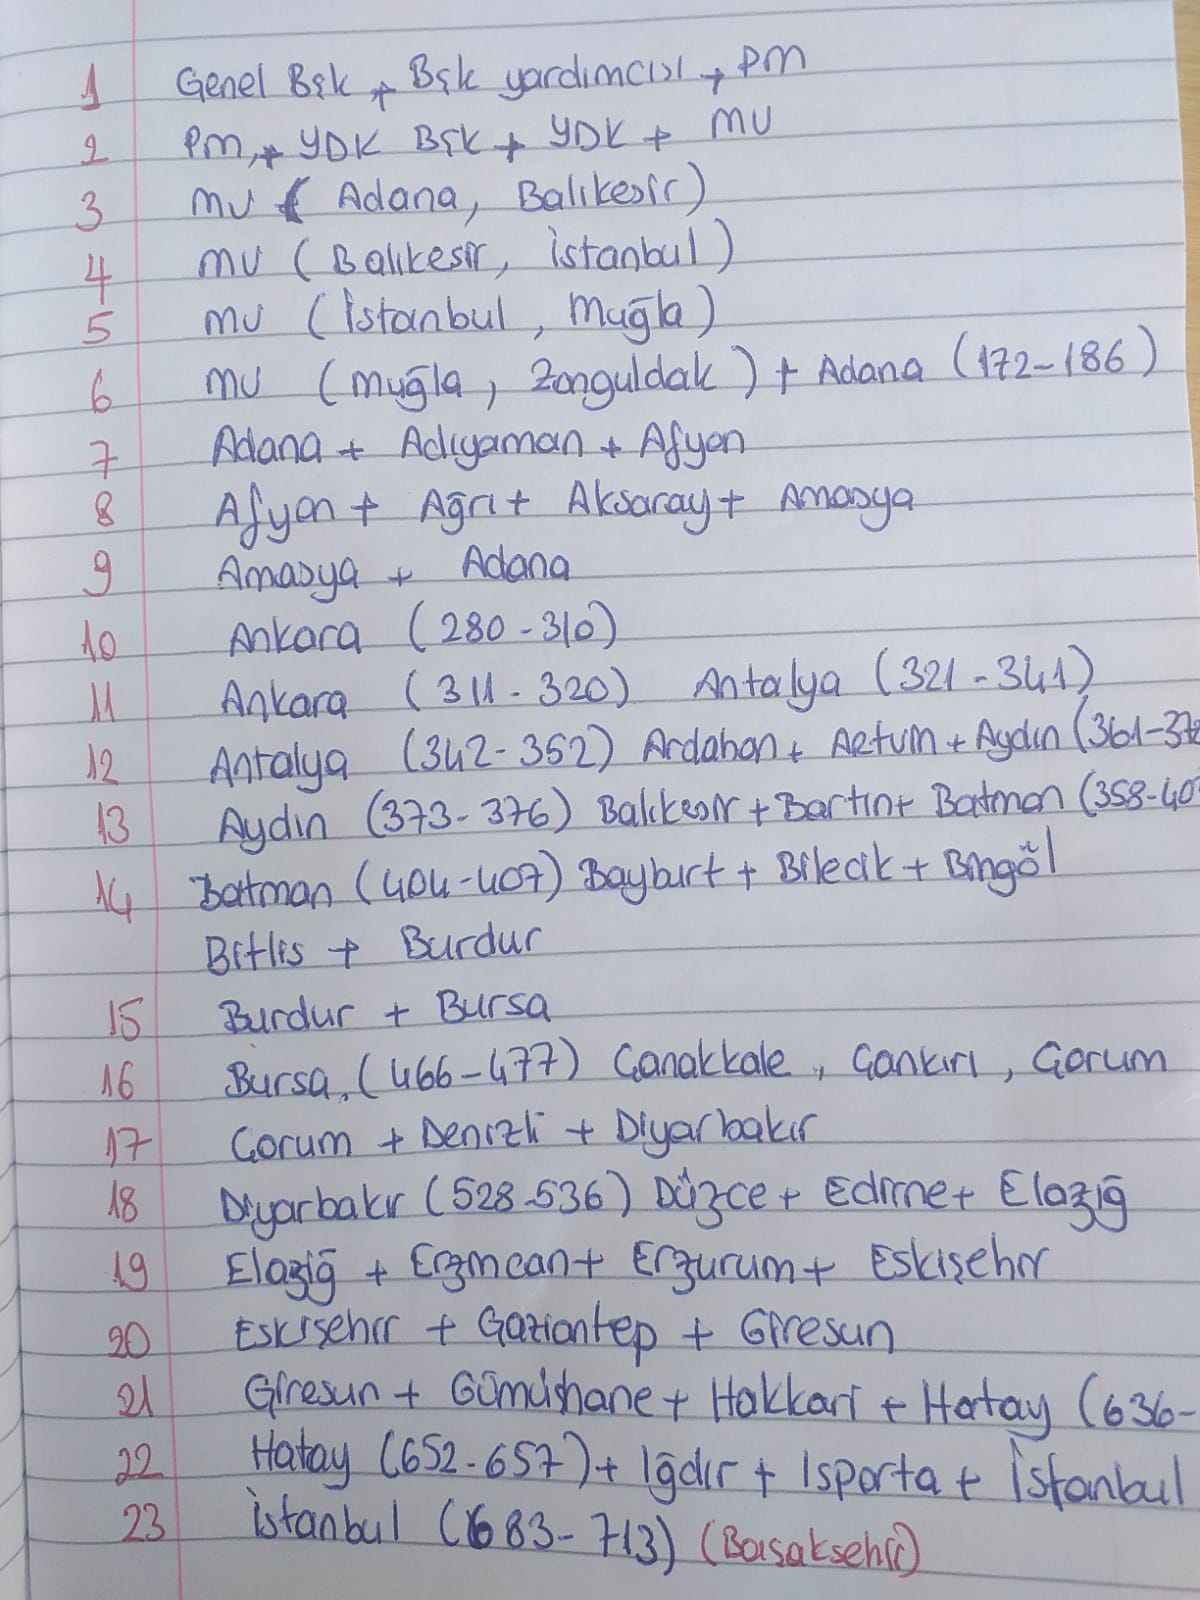 1 Genel Bşk + Bşk yardımcısı + PM
2 PM, + YDK Bşk + YDK + MV
3 MV ( Adana, Balıkesir)
4 MV ( Balıkesir, İstanbul )
5 MV ( İstanbul, Muğla )
6 MV ( Muğla, Zonguldak ) + Adana (172-186)
7 Adana + Adıyaman + Afyon
8 Afyon + Ağrı + Aksaray + Amasya
9 Amasya + Adana
10 Ankara (280-310)
11 Ankara (311-320) Antalya (321-341)
12 Antalya (342-352) Ardahan + Artvin + Aydın (361-372
13 Aydın (373-376) Balıkesir + Bartın + Batman (358-40
14 Batman (404-407) Bayburt + Bilecik + Bingöl
Bitlis + Burdur
15 Burdur + Bursa
16 Bursa, (466-477) Çanakkale, Çankırı, Çorum
17 Çorum + Denizli + Diyarbakır
18 Diyarbakır (528-536) Düzce + Edirne + Elazığ
19 Elazığ + Erzincan + Erzurum + Eskişehir
20 Eskişehir + Gaziantep + Giresun
21 Giresun + Gümüşhane + Hakkari + Hatay (636-
22 Hatay (652-657) + Iğdır + Isparta + İstanbul
23 İstanbul (683-713) (Başakşehir)